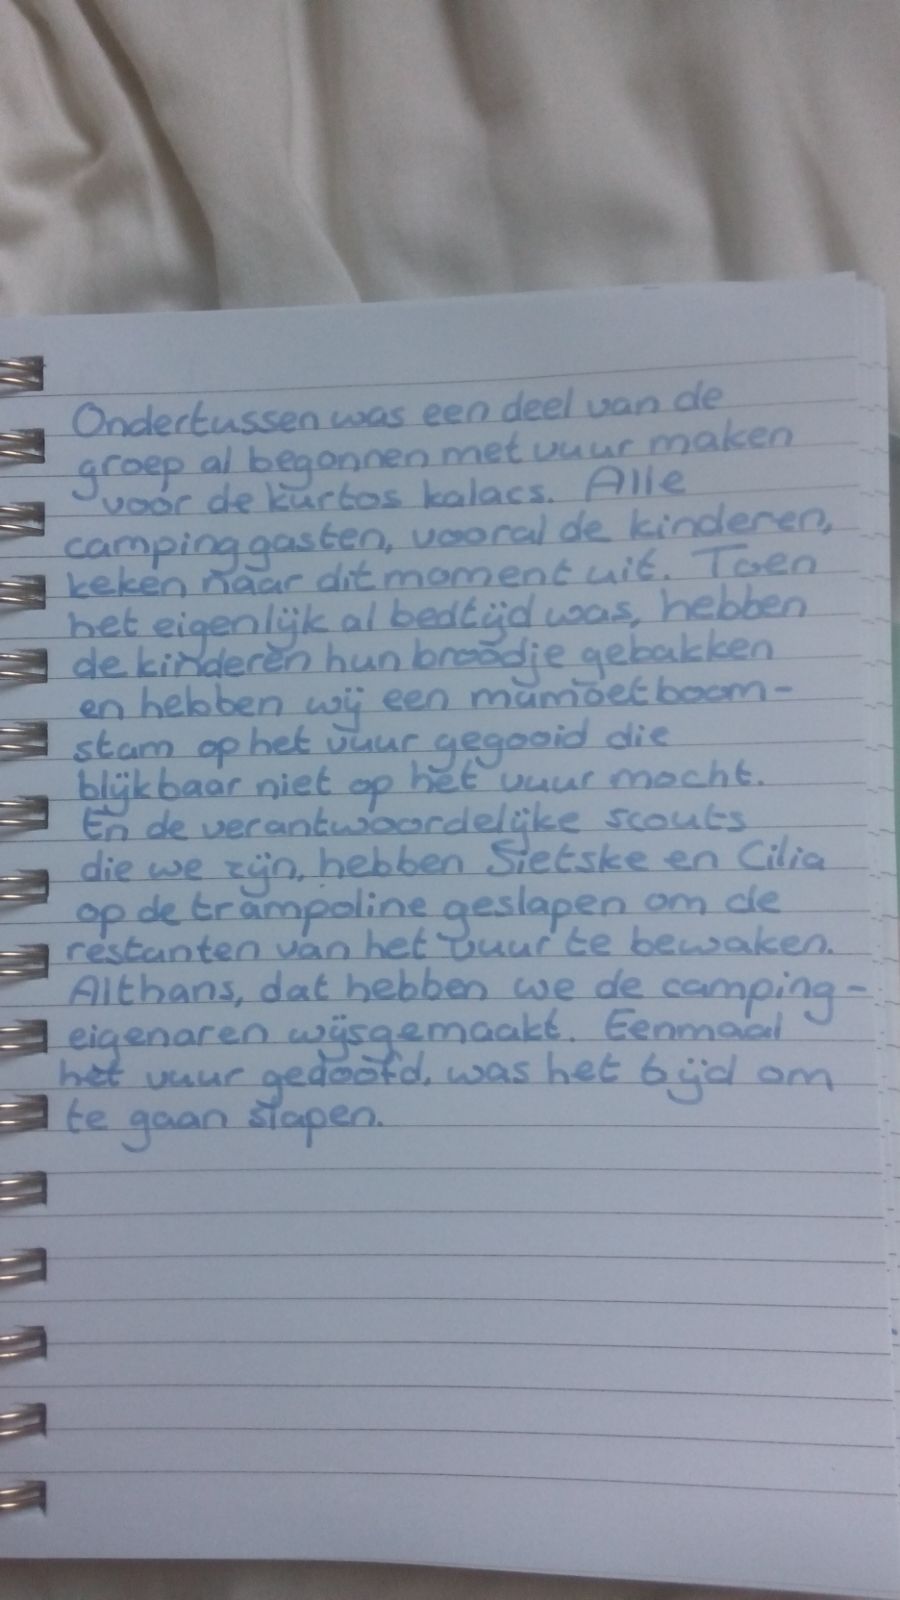 Ondertussen was een deel van de
groep al begonnen met vuur maken
voor de kurtos kalacs. Alle
campinggasten, vooral de kinderen,
keken naar dit moment uit. Toen
het eigenlijk al bedtijd was, hebben
de kinderen hun broodje gebakken
en hebben wij een mamoetboom-
stam op het vuur gegooid die
blijkbaar niet op het vuur mocht.
En de verantwoordelijke scouts
die we zijn, hebben Sietske en Cilia
op de trampoline geslapen om de
restanten van het vuur te bewaken.
Althans, dat hebben we de camping-
eigenaren wijsgemaakt. Eenmaal
het vuur gedoofd, was het tijd om
te gaan slapen.